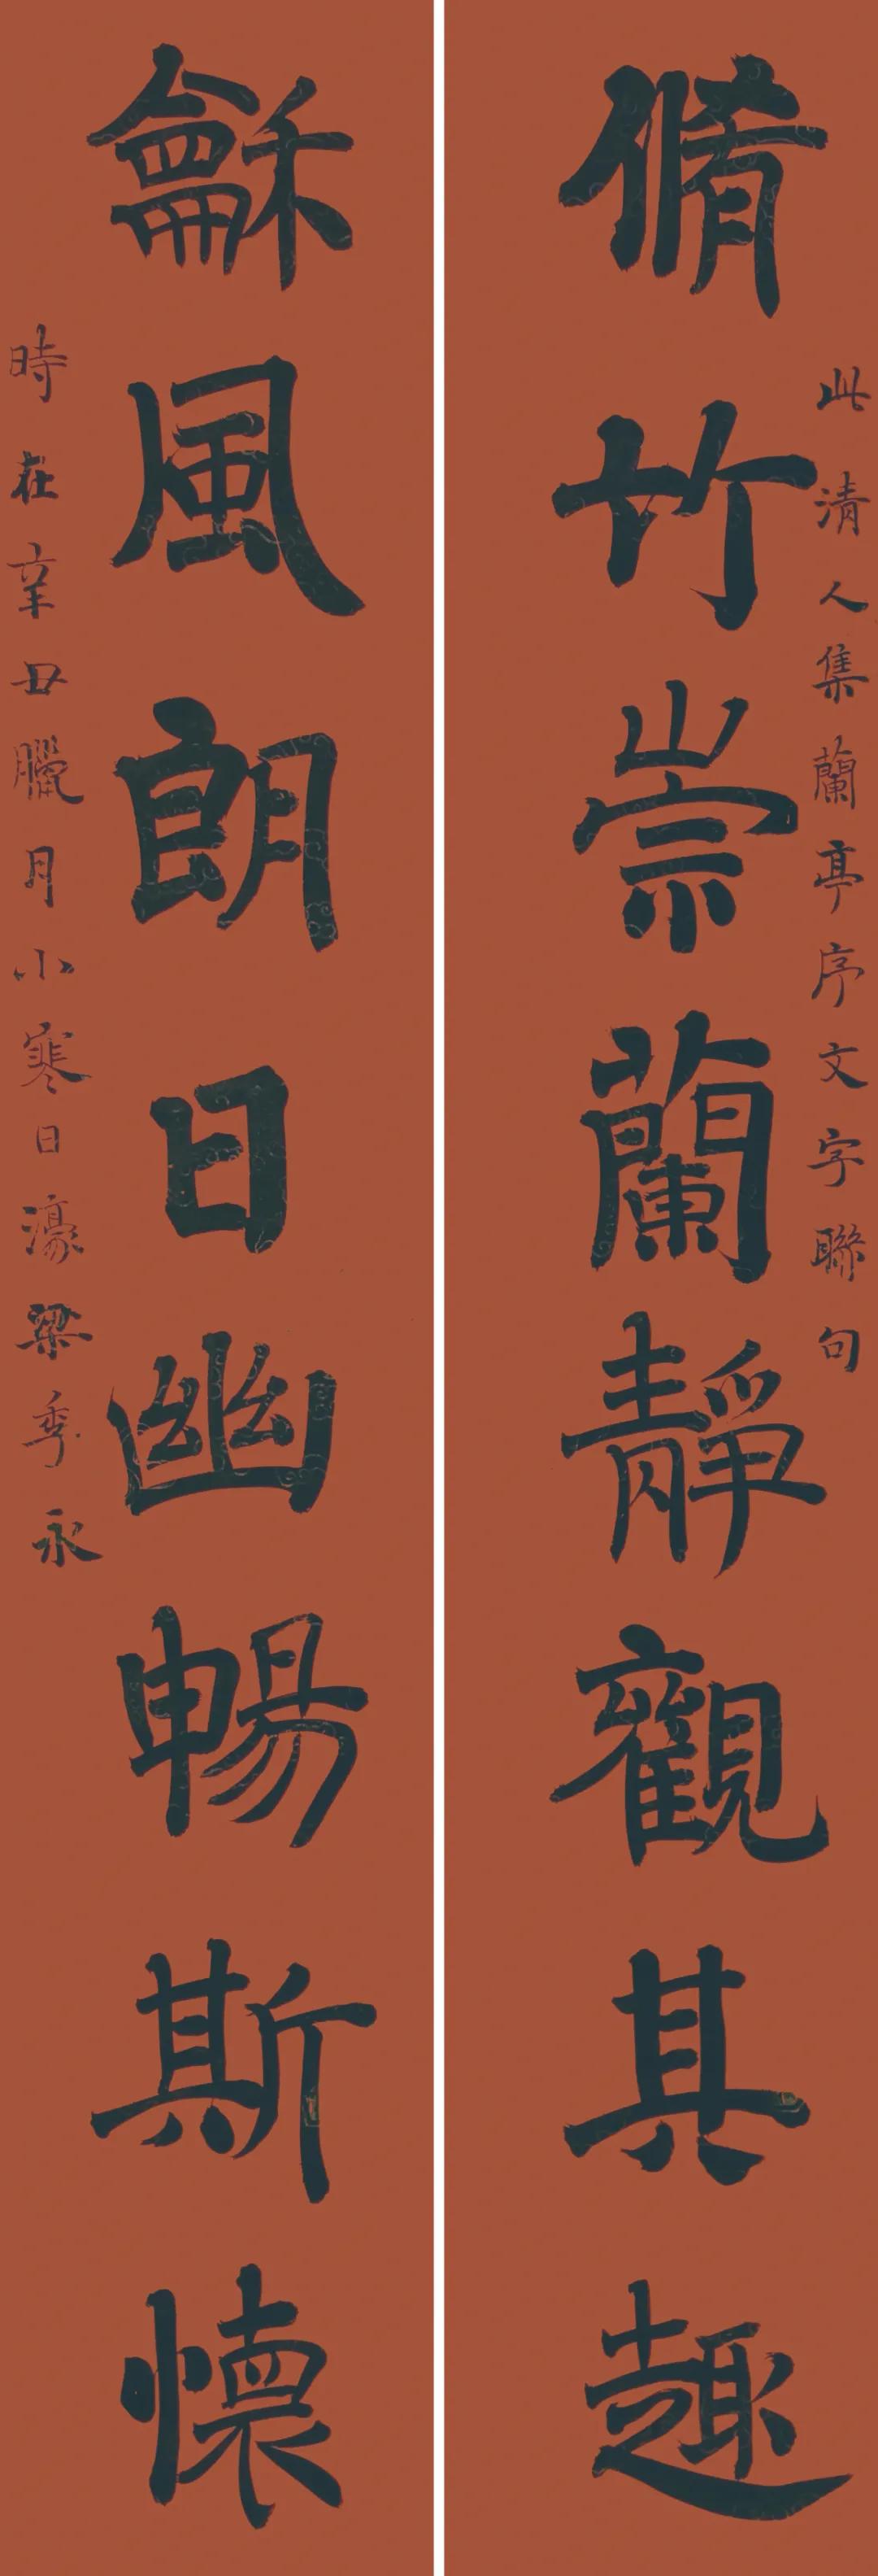 此清人集蘭亭序文字聯句
脩竹崇蘭靜觀其趣
龢風朗日幽暢斯懷
時在辛丑臘月小寒日濠梁季永